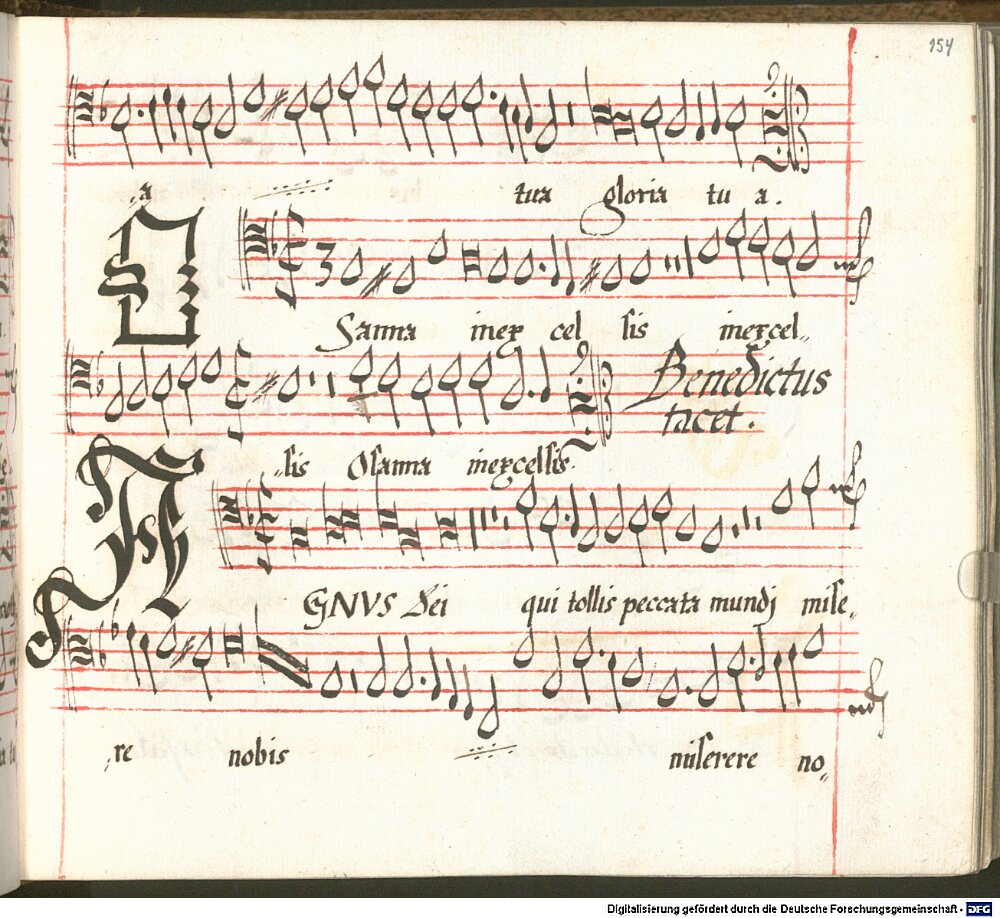 154
a tua gloria tu a.
OSanna inex cel sis inexcel„
„sis Osanna inexcellsis.
Benedictus
tacet.
AGNVS Dei qui tollis peccata mundj mise„
„re nobis miserere no„
Digitalisierung gefördert durch die Deutsche Forschungsgemeinschaft - DFG